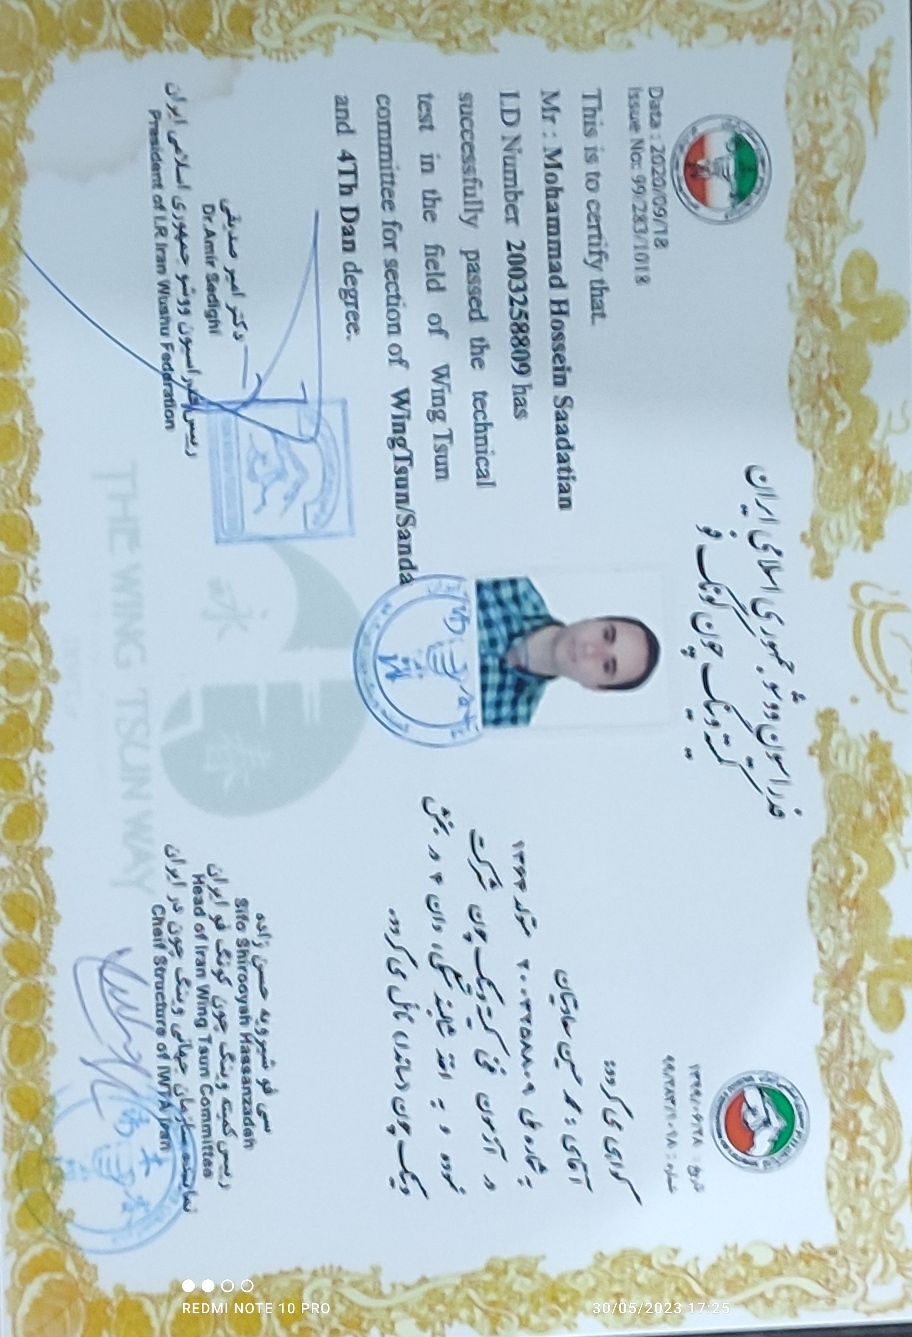 فدراسیون ووشو جمهوری اسلامی ایران
کمیته وینگ چون کونگ فو
Data : 2020/09/18
Issue No: 99/283/1018
This is to certify that
Mr : Mohammad Hossein Saadatian
I.D Number 2003258809 has
successfully passed the technical
test in the field of Wing Tsun
committee for section of WingTsun/Sanda
and 4Th Dan degree.
دکتر امیر صدیقی
Dr.Amir Sedighi
رییس فدراسیون ووشو جمهوری اسلامی ایران
President of I.R Iran Wushu Federation
تاریخ : ۱۳۹۹/۰۶/۲۸
شماره : ۹۹/۲۸۳/۱۰۱۸
گواهی می گردد:
آقای : محمد حسین سعادتیان
به شماره ملی ۲۰۰۳۲۵۸۸۰۹ متولد ۱۳۶۴
در آزمون فنی کمیته وینگ چون شرکت
نموده و به اخذ شایستگی دان ۴ در بخش
وینگ چون (ساندا) نائل می گردد.
سی فو شیرویه حسن زاده
Sifo Shirooyah Hassanzadeh
رییس کمیته وینگ چون کونگ فو ایران
Head of Iran Wing Tsun Committee
نماینده سازمان جهانی وینگ چون در ایران
Cheif Structure of IWTA Iran
永
春
THE WING TSUN WAY
REDMI NOTE 10 PRO
30/05/2023 17:25